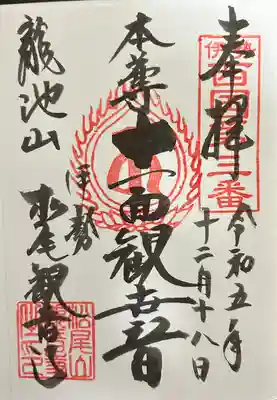 奉拝
令和五年
十二月十八日
本尊
十一面観世音
伊勢
龍池山
松尾観音寺